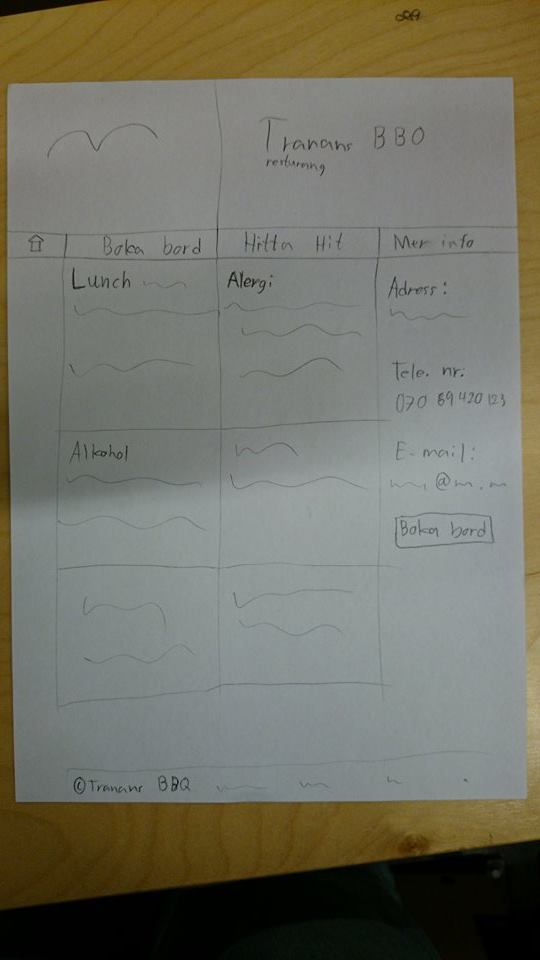 Tranans BBQ
resturang
Boka bord
Hitta Hit
Mer info
Lunch
Alergi
Adress:
Tele. nr.
070 89 420 123
Alkohol
E-mail:
@
Boka bord
©Tranans BBQ